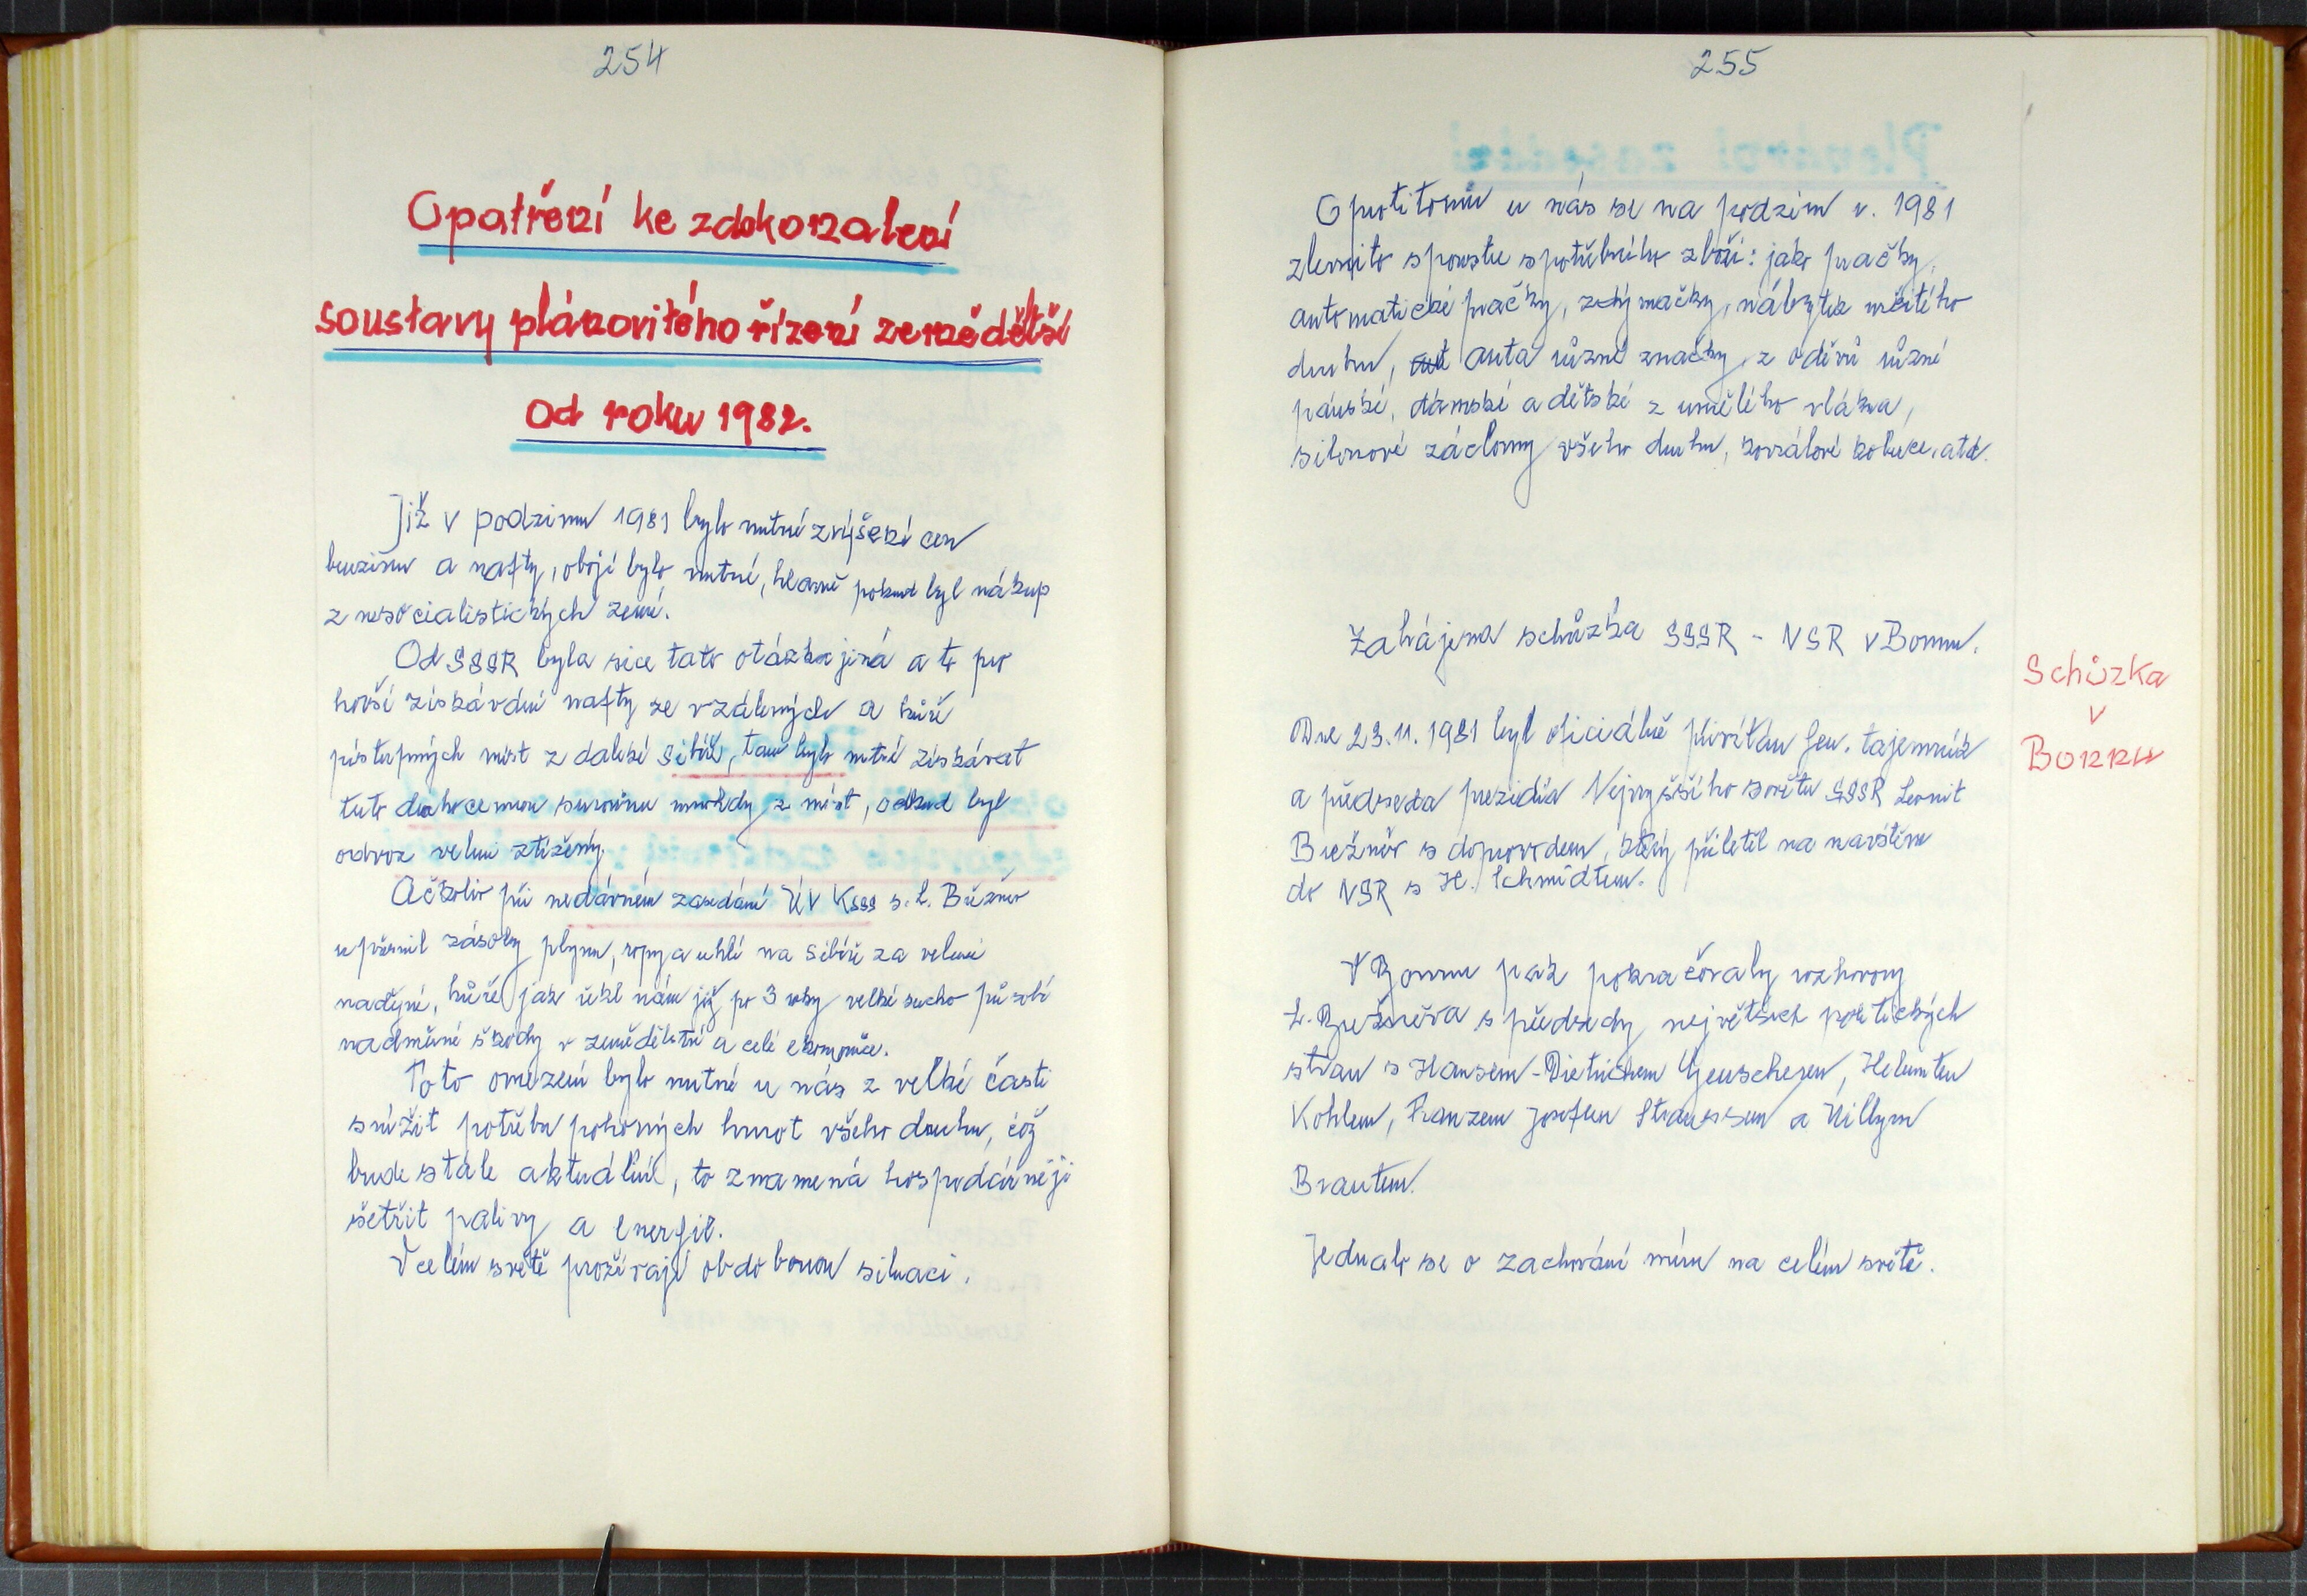 254
Opatření ke zdokonalení
soustavy plánovitého řízení zemědělství
od roku 1982.
Již v podzimu 1981 bylo nutné zvýšení cen
benzinu a nafty, obojí bylo nutné, hlavně pokud byl nákup
z nesocialistických zemí.
Od SSSR byla sice tato otázka jiná a to pro
horší získávání nafty ze vzdálených a hůře
přístupných míst z daleké Sibiře, tam bylo nutné získávat
tuto drahocennou surovinu mnohdy z míst, odkud byl
odvoz velmi ztížený.
Ačkoliv při nedávném zasedání ÚV KSSS s. L. Brežněv
upřesnil zásoby plynu, ropy a uhlí na Sibiři za velmi
nadějné, hůře jak řekl nám již po 3 roky velké sucho působí
nadměrné škody v zemědělství a celé ekonomice.
Toto omezení bylo nutné u nás z velké časti
snížit potřebu pohoných hmot všeho druhu, což
bude stále aktuální, to znamená hospodárněji
šetřit palivy a energií.
V celém světě prožívají obdobnou situaci.
255
Oprotitomu u nás se na podzim r. 1981
zlevnilo spoustu spotřebního zboží: jako pračky,
automatické pračky, ždýmačky, nábytek určitého
druhu, auta různé značky, z oděvů různé
pánské, dámské a dětské z umělého vlákna,
silonové záclony všeho druhu, kovrálové koberce, atd.
Zahájena schůzka SSSR - NSR v Bonnu.
Schůzka
v
Bonnu
Dne 23.11.1981 byl oficiálně přivítán Gen. tajemník
a předseda prezidia Nejvyššího sovětu SSSR Leonit
Brežněv s doprovodem, který přiletěl na navštěvu
do NSR s H. Schmidtem.
V Bonnu pak pokračovaly rozhovory
L. Brežněva s předsedy největších politických
stran s Hansem-Dietrichem Genscherem, Helmutem
Kohlem, Franzem Josefem Straussem a Villym
Brantem.
Jednalo se o zachování míru na celém světě.